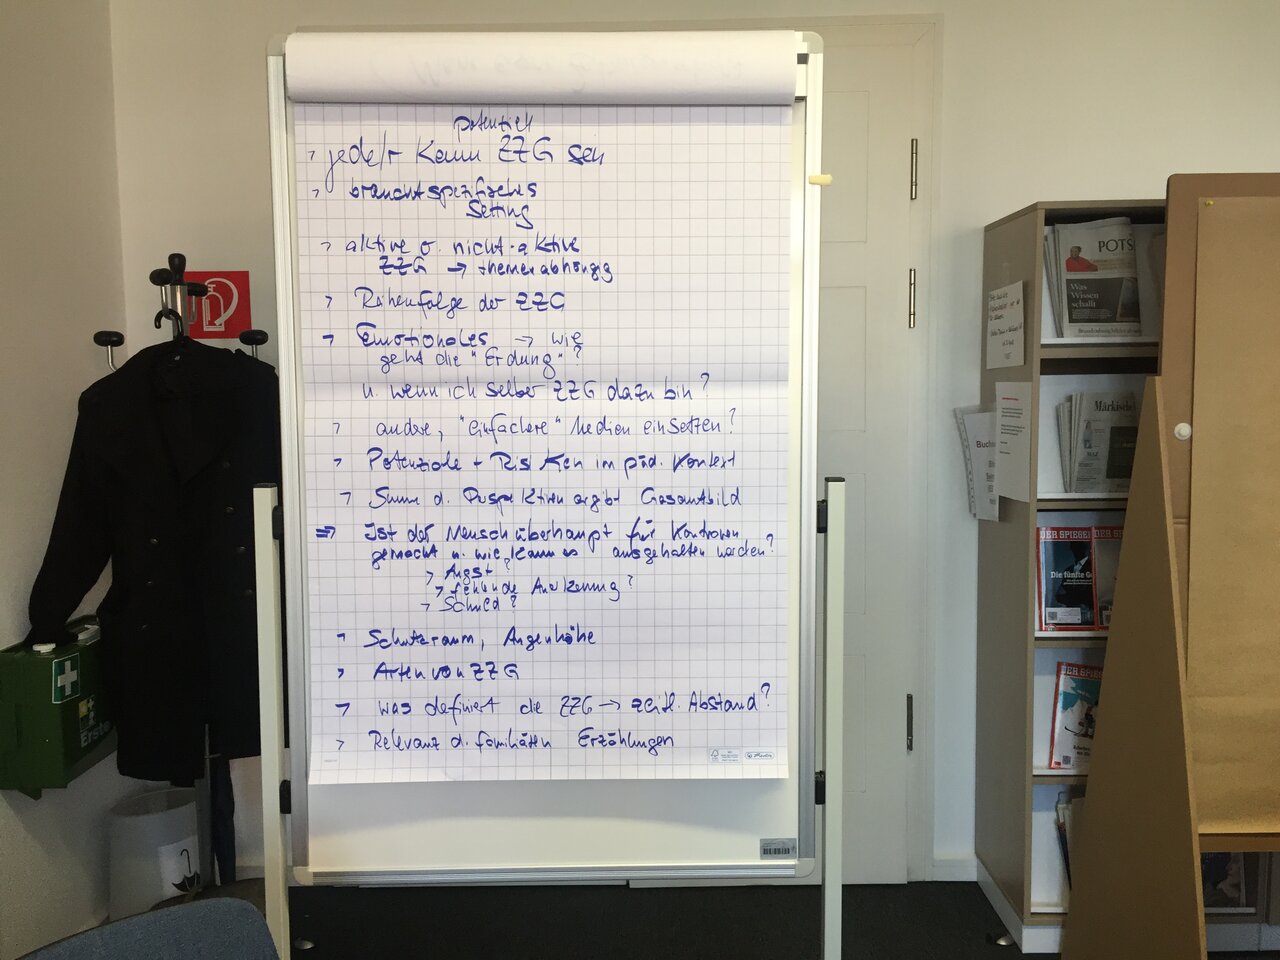 potenziell
> jede/r kann ZZG sein
> braucht spezifisches
Setting
> aktive o. nicht-aktive
ZZG → themenabhängig
> Reihenfolge der ZZG
> Emotionales → wie
geht die "Erdung"?
u. wenn ich selber ZZG dazu bin?
> andere, "einfachere" Medien einsetzen?
> Potenziale + Risiken im päd. Kontext
> Summe d. Perspektiven ergibt Gesamtbild
⇒ Ist der Mensch überhaupt für
gemacht u. wie kann es ausgehalten werden?
> Angst?
> fehlende Anerkennung?
> Schuld?
> Schutzraum, Augenhöhe
> Arten von ZZG
> was definiert die ZZG → zeitl. Abstand?
> Relevanz d. familiären Erzählungen
POTS
Was
Wissen
schafft
Märkische
MAZ
Buch
DER SPIEGEL
Die fünfte
DER SP
DER SPIEGEL
Erste